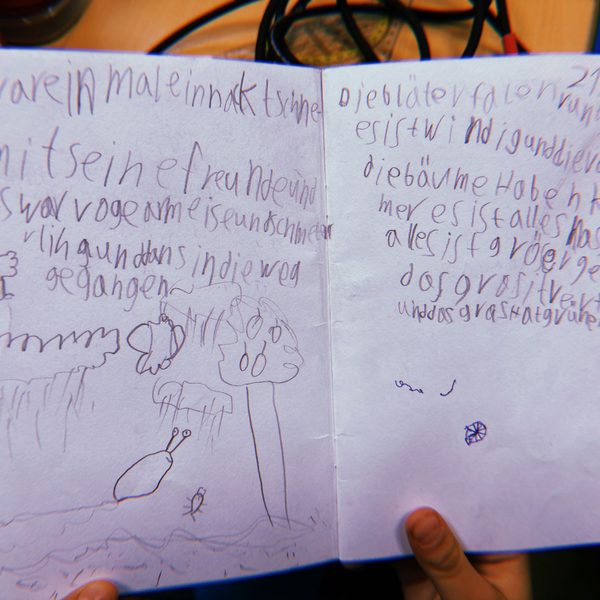 war ein mal ein nakt schne
mit seine freunde und
s war vogel armeise und schmeter
rling und dans sin die weg
gegangen
21
Die bläter falen run
es ist windig und die
die bäume Haben k
mer es ist alles nas
alles ist gröer ge
das gras ist ver
und das gras Hat grüne